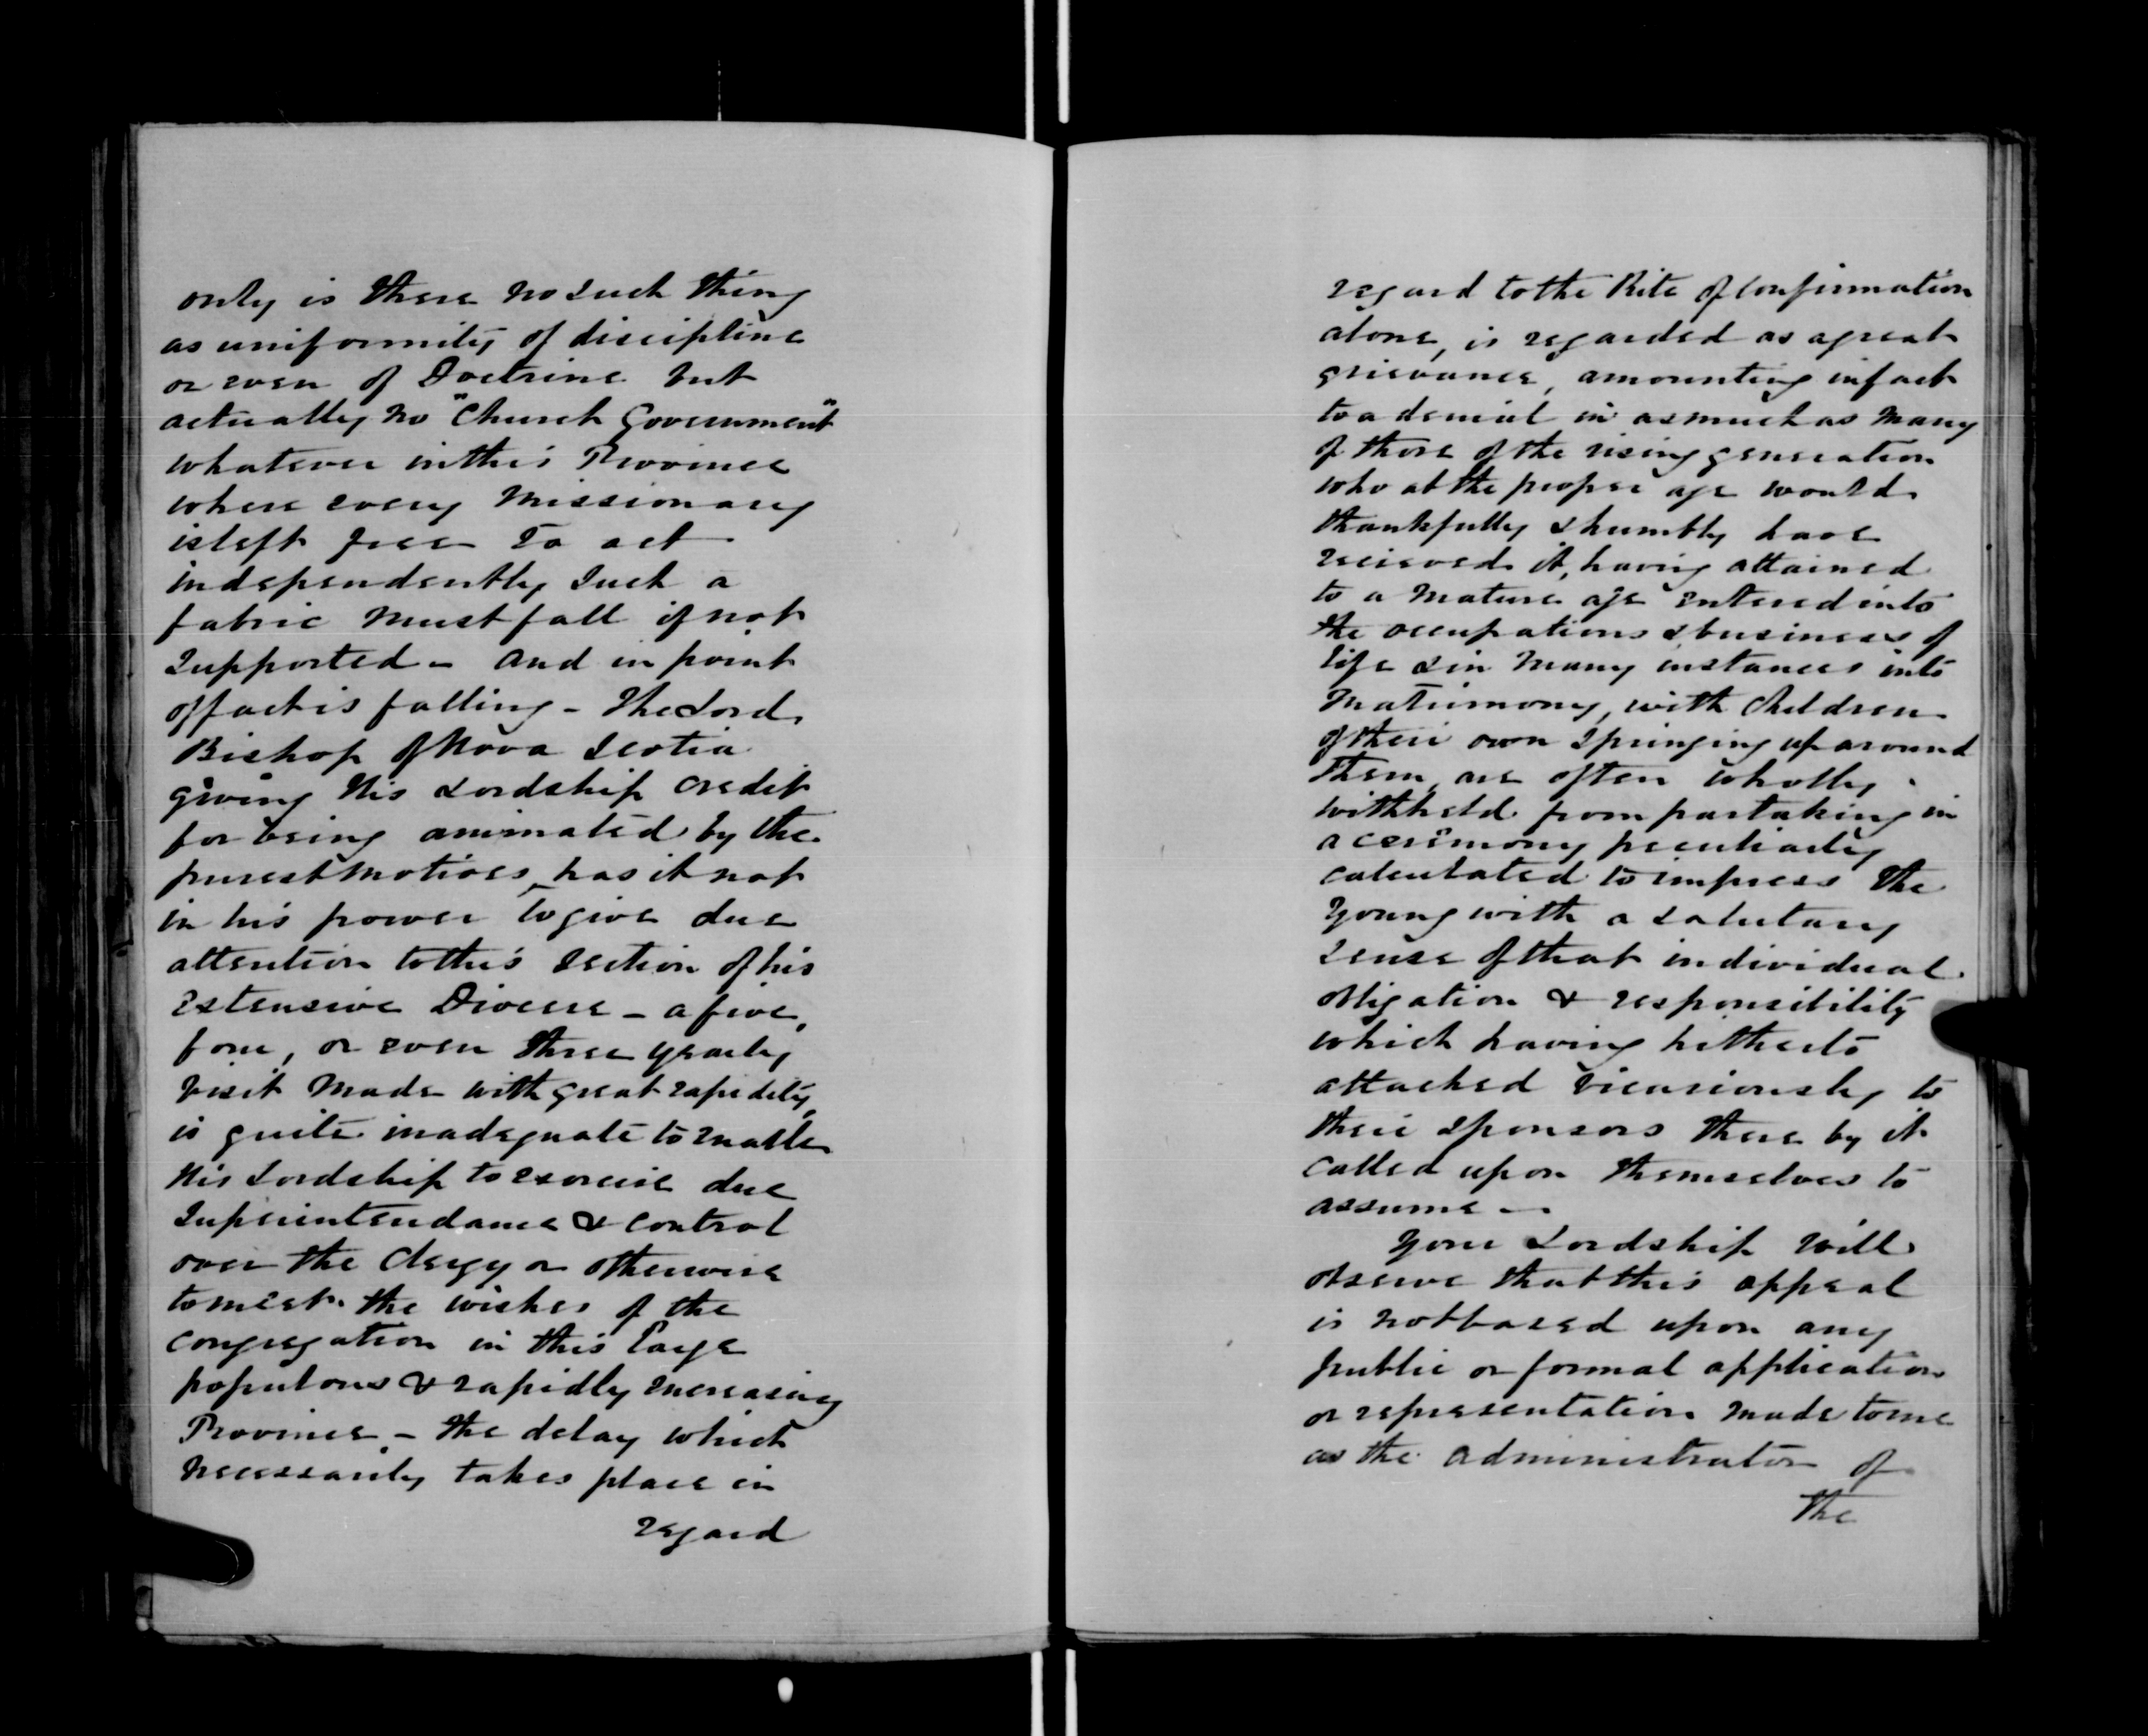 only is there no such thing
as uniformity of discipline
or even of Doctrine but
actually no "Church Government"
whatever in this Province
where every Missionary
is left free to act
independently such a
fabric must fall if not
supported - and in point
of fact is falling - The Lord
Bishop of Nova Scotia
giving His Lordship credit
for being animated by the
purest motives, has it not
in his power to give due
attention to this section of his
extensive Diocese - a five,
four, or even three yearly
visit made with great rapidity,
is quite inadequate to enable
His Lordship to exercise due
Superintendance & control
over the Clergy or otherwise
to meet the wishes of the
congregation in this large
populous & rapidly increasing
Province - the delay which
necessarily takes place in
regard
regard to the Rite of Confirmation
alone, is regarded as a great
grievance, amounting in fact
to a denial in as much as many
of those of the rising generation
who at the proper age would
thankfully & humbly have
received it, having attained
to a mature age entered into
the occupations & business of
life & in many instances into
Matrimony, with Children
of their own springing up around
them, are often wholly
withheld from partaking in
a ceremony peculiarly
calculated to impress the
young with a salutary
sense of that individual
obligation & responsibility
which having hitherto
attached vicariously to
their sponsors there by it
called upon themselves to
assume -
Your Lordship will
observe that this appeal
is not based upon any
public or formal application
or representation made to me
as the administrator of
the